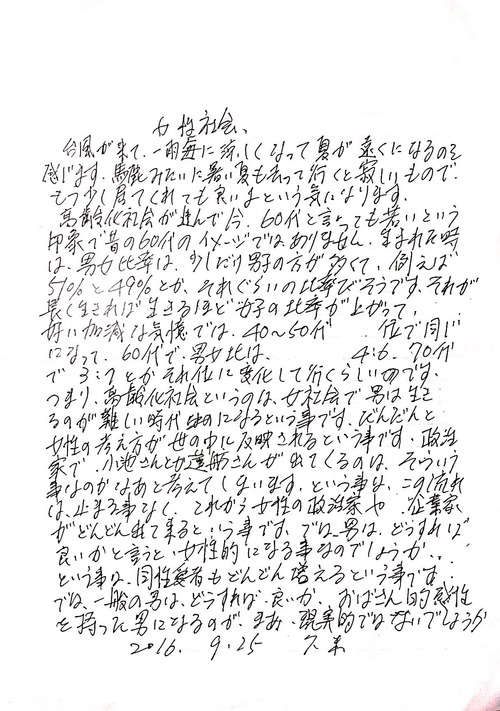 女性社会、
台風が来て、一雨毎に涼しくなって夏が遠くになるのを
感じます。馬鹿みたいに暑い夏も去って行くと寂しいもので
もう少し居てくれても良いよという気になります。
高齢化社会が進んで今、60代と言っても若いという
印象で昔の60代のイメージではありません。生まれた時
は、男女比率は、少しだけ男子の方が多くて、例えば
51%と49%とか、それぐらいの比率だそうです。それが
長く生きれば生きるほど女子の比率が上がって、
好い加減な気憶では、40〜50代 位で同じ
になって、60代で、男女比は、 4:6、70代
で 3:7とかそれ位に変化して行くらしいのです。
つまり、高齢化社会というのは、女社会で男は生き
るのが難しい時代になるという事です。だんだんと
女性の考え方が世の中に反映されるという事です。政治
家で、小池さんとか蓮舫さんが出てくるのは、そういう
事なのかなあと考えてしまいます。という事は、この流れ
は止まる事なく、これから女性の政治家や、企業家
がどんどん出て来るという事です。では、男は、どうすれば
良いかと言うと、女性的になる事なのでしょうか、、
という事は、同性愛者もどんどん増えるという事です
では、一般の男は、どうすれば、良いか、おばさん的感性
を持った男になるのが、まあ、現実的ではないでしょうか
2016. 9.25